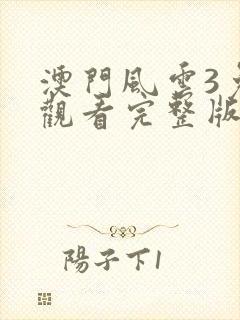 澳門風雲3免
觀看完整版
陽子下1